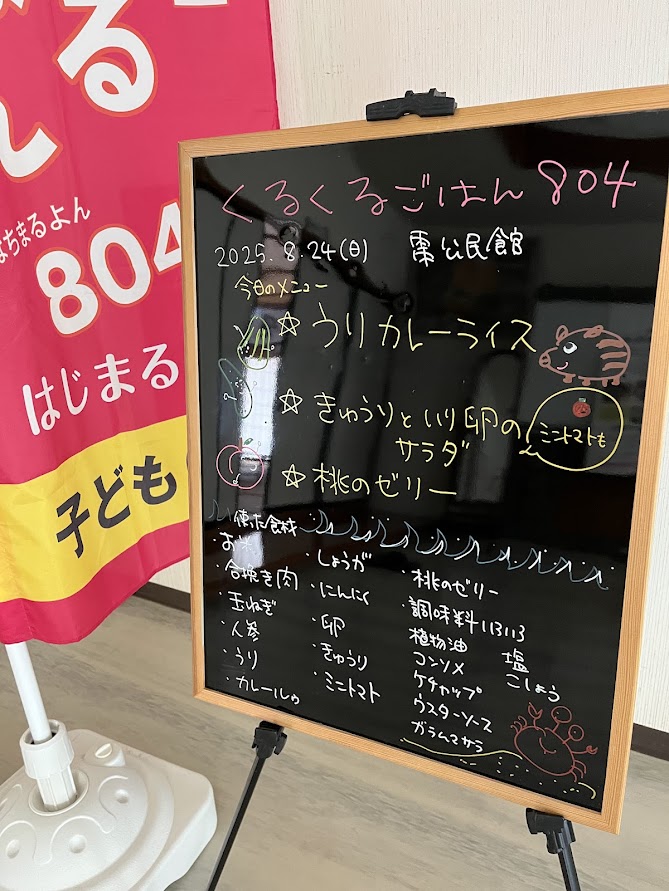 る
ん
はちまるよん
804
はじまる
子ども
くるくるごはん 804
2025.8.24(日) 栗公民館
今日のメニュー
☆うりカレーライス
☆きゅうりといり卵の
サラダ
ミニトマトも
☆桃のゼリー
使った食材
お米
・合挽き肉
・玉ねぎ
・人参
・うり
・カレールゥ
・しょうが
・にんにく
・卵
・きゅうり
・ミニトマト
・桃のゼリー
・調味料いろいろ
植物油 塩
コンソメ こしょう
ケチャップ
ウスターソース
ガラムマサラ